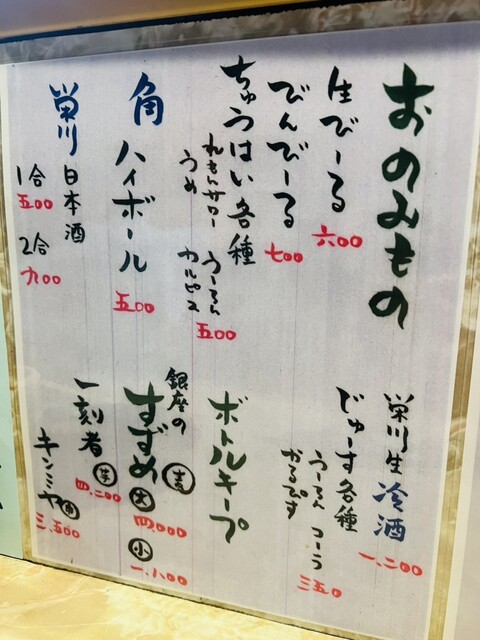 おのみもの
生びーる
六〇〇
びんびーる
七〇〇
ちゅうはい各種
れもんサワー うーろん
うめ カルピス
五〇〇
角ハイボール
五〇〇
栄川
日本酒
1合
五〇〇
2合
九〇〇
栄川生冷酒
一、二〇〇
じゅーす各種
うーろん コーラ
かるぴす
三五〇
ボトルキープ
銀座の
すずめ 麦
大
四、〇〇〇
小
一、八〇〇
一刻者 芋
四、二〇〇
キンミヤ
三、五〇〇